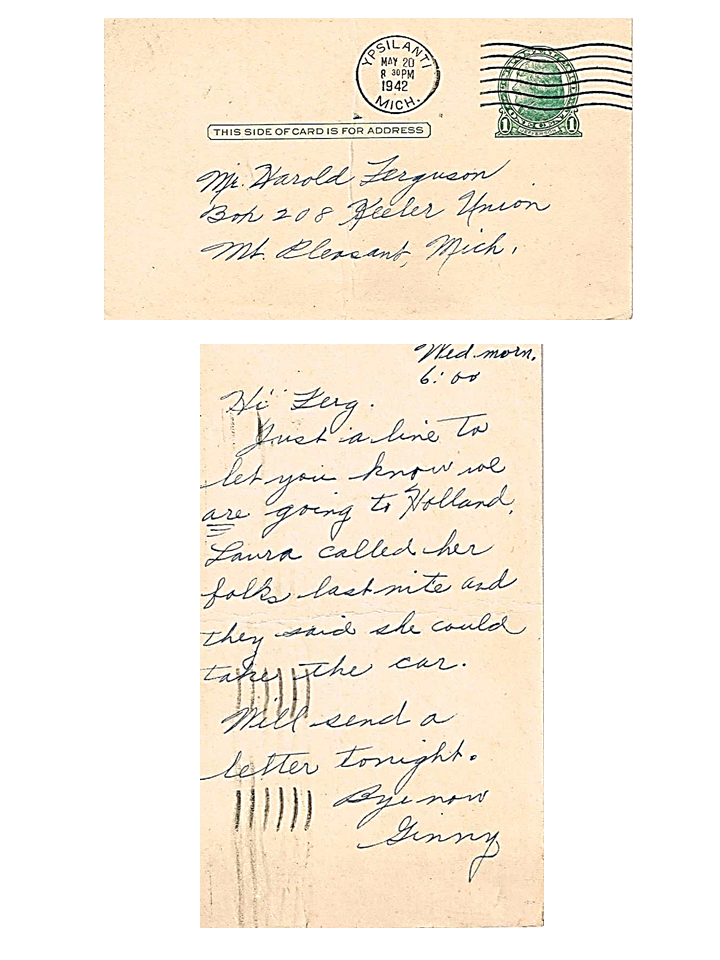 YPSILANTI
MAY 20
8 30 PM
1942
MICH.
1 JEFFERSON 1
THIS SIDE OF CARD IS FOR ADDRESS
Mr. Harold Ferguson
Box 208 Keeler Union
Mt. Pleasant, Mich.
Wed. morn.
6:00
Hi Ferg.
Just a line to
let you know we
are going to Holland.
Laura called her
folks last nite and
they said she could
take the car.
Will send a
letter tonight.
Bye now
Ginny